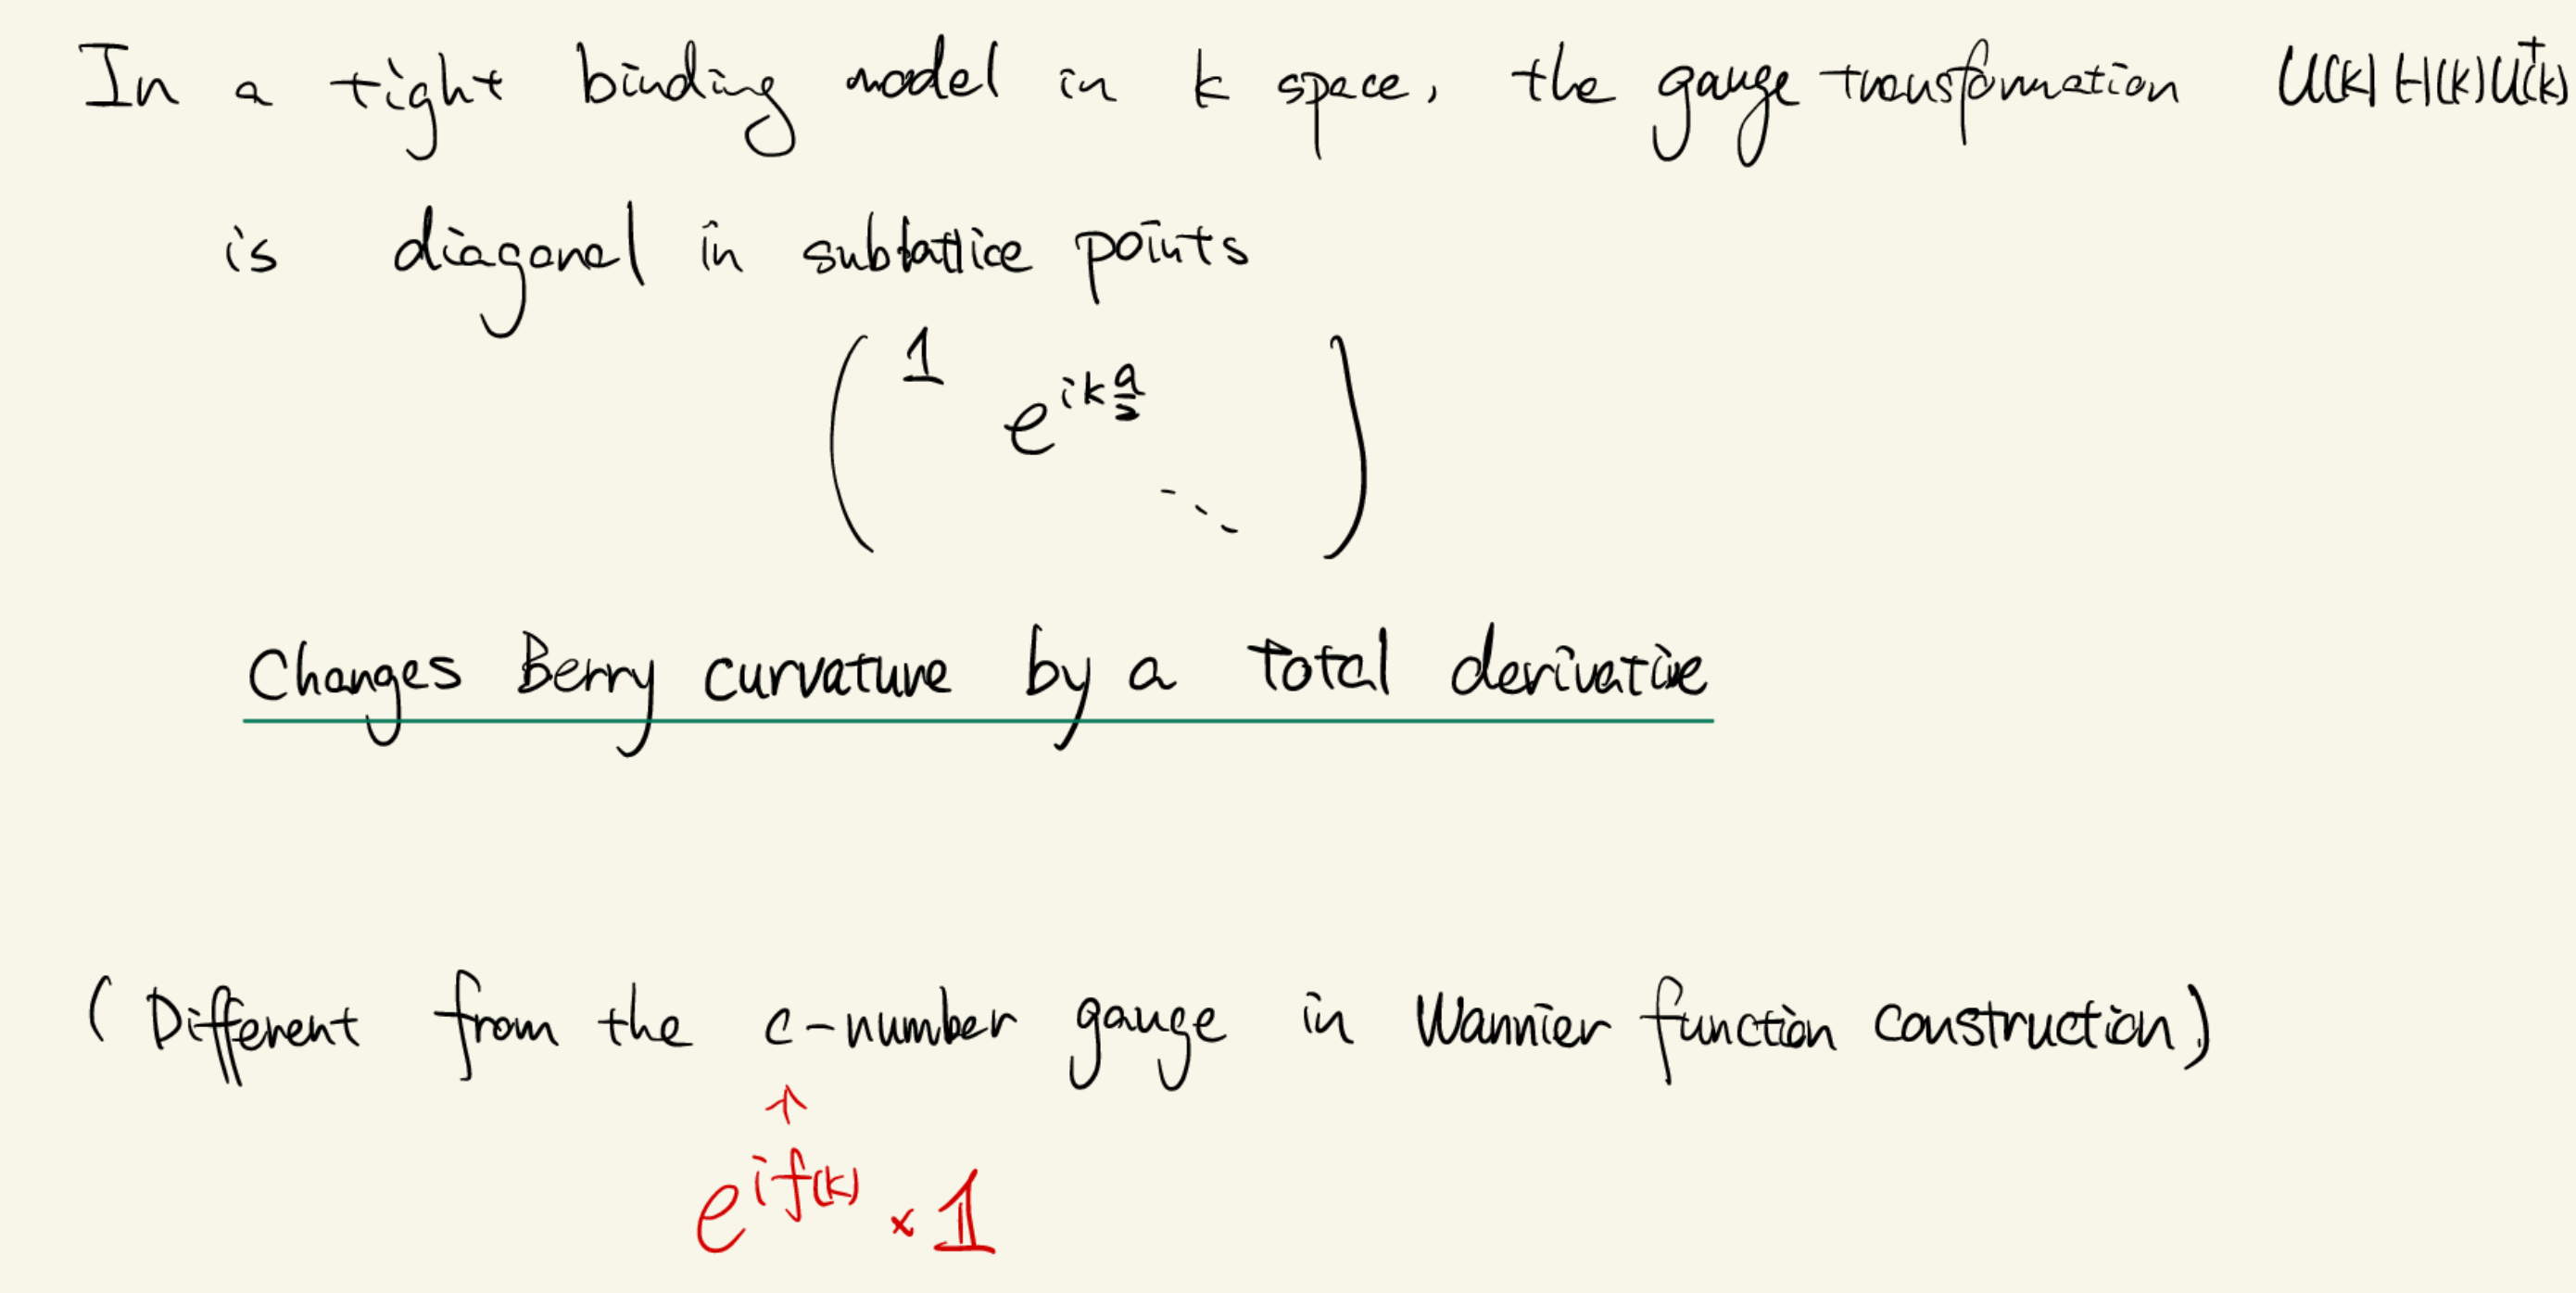 In a tight binding model in k space, the gauge transformation U(k)H(k)U†(k)
is diagonal in sublattice points
1
e^{ik\frac{a}{2}}
⋱
Changes Berry curvature by a total derivative
(Different from the c-number gauge in Wannier function construction)
↑
e^{if(k)} × 𝟙